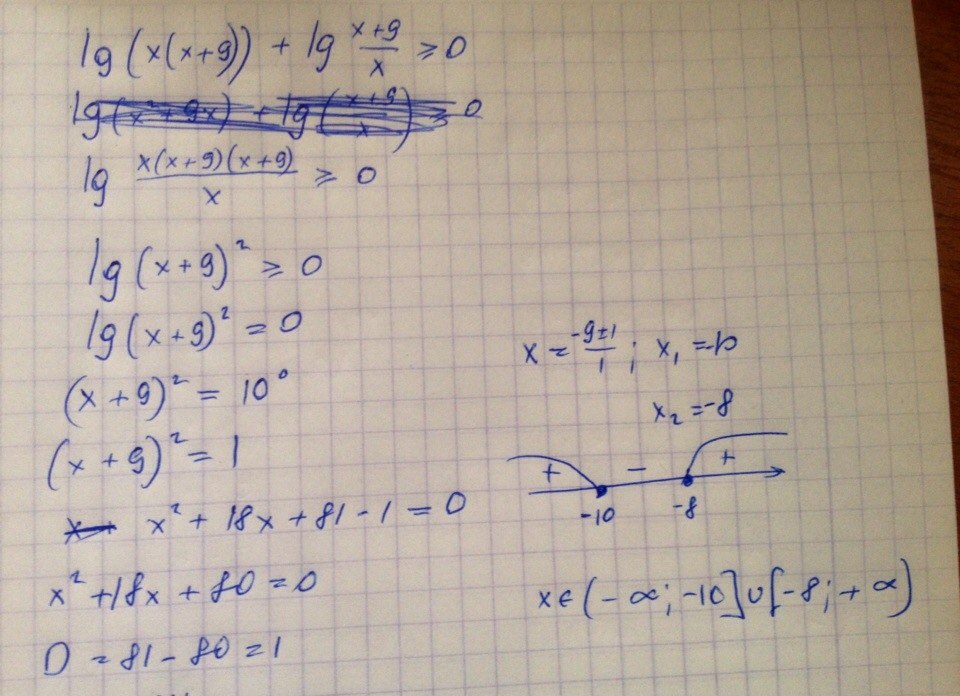 lg (x(x+9)) + lg \frac{x+9}{x} ≥ 0
lg \frac{x(x+9)(x+9)}{x} ≥ 0
lg (x+9)² ≥ 0
lg (x+9)² = 0
(x+9)² = 10⁰
(x+9)² = 1
x² + 18x + 81 - 1 = 0
x² + 18x + 80 = 0
D = 81 - 80 = 1
x = \frac{-9±1}{1} ; x₁ = -10
x₂ = -8
+ - +
-10 -8
x ∈ (-∞; -10] ∪ [-8; +∞)